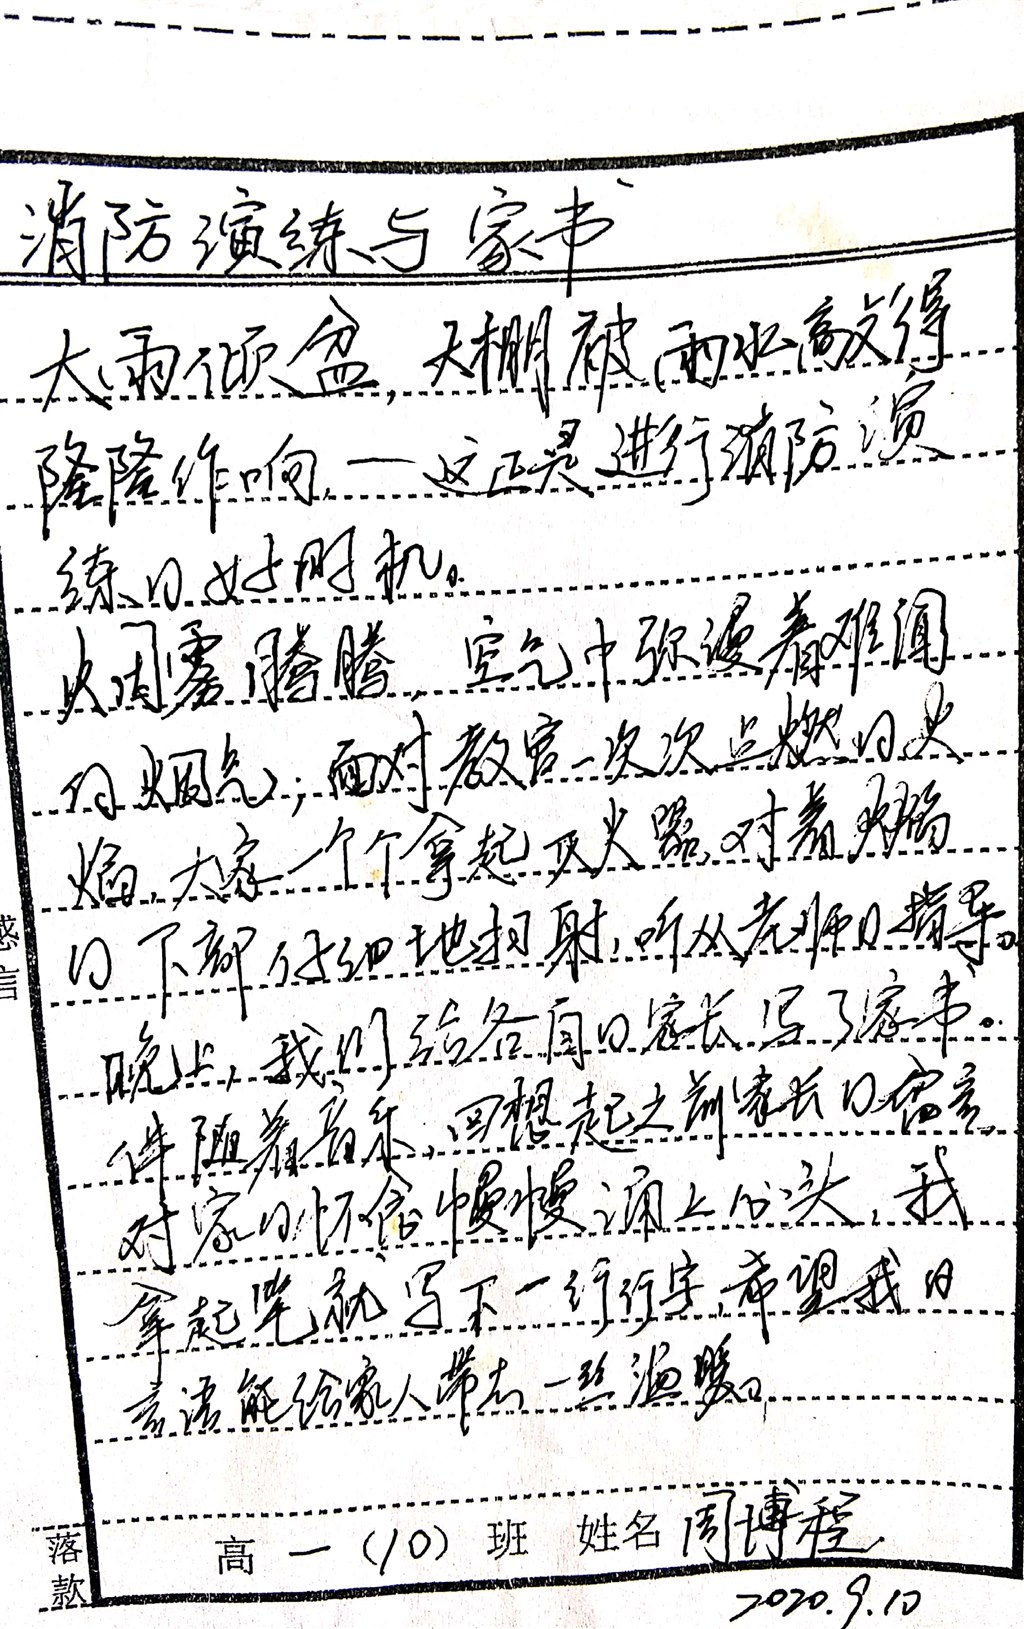 消防演练与家书
大雨倾盆，天棚被雨水敲得
隆隆作响，一这正是进行消防演
练的好时机。
烟雾腾腾，空气中弥漫着难闻
的烟气；面对教官一次次点燃的火
焰，大家一个个拿起灭火器，对着火焰
的下部仔细地扫射，听从老师的指导。
晚上，我们给各自的家长写了家书。
伴随着音乐，回想起之前家长的留言，
对家的怀念慢慢涌上心头，我
拿起笔就写下一行行字，希望我的
言语能给家人带去一丝温暖。
感言
落款
高一（10）班 姓名 周博程
2020.9.10